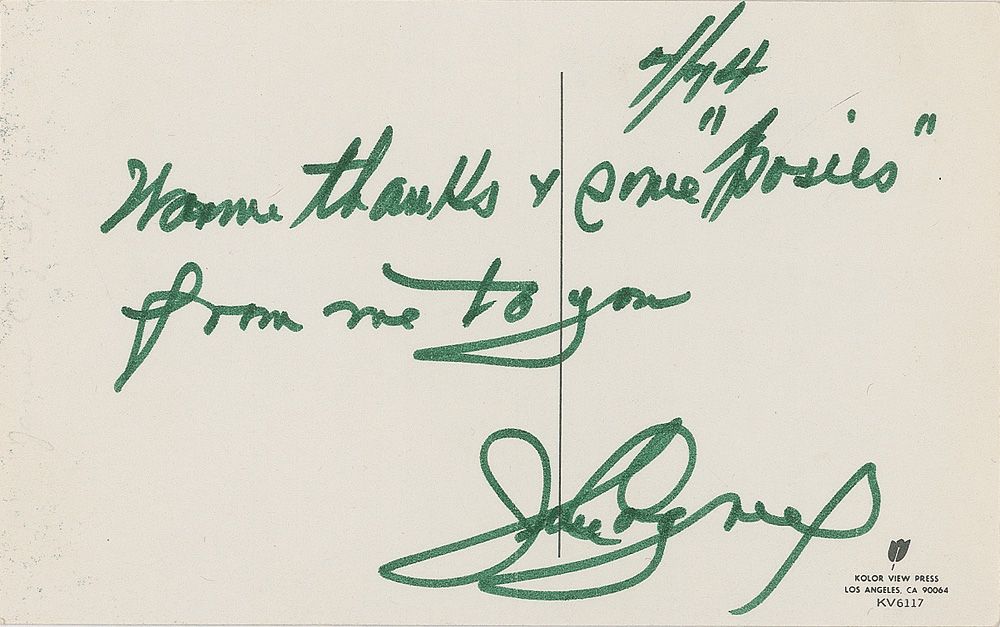 Warm thanks & some "posies"
from me to you
KOLOR VIEW PRESS
LOS ANGELES, CA 90064
KV6117